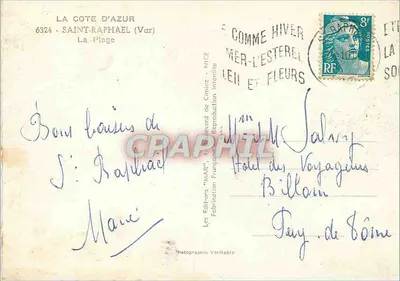 LA COTE D'AZUR
6324 - SAINT-RAPHAEL (Var)
La Plage
COMME HIVER
MER-L'ESTEREL
LEIL ET FLEURS
8F
POSTES
RF
ETE
LA
SO
Bons baisers de
St Raphael
Marie
CPAPHIL.com
Les Editions "MAR", Boulevard de Cimiez - NICE
Fabrication Française - Reproduction Interdite
Photographie Véritable
Mme
Hotel des Voyageurs
Billom
Puy de Dôme